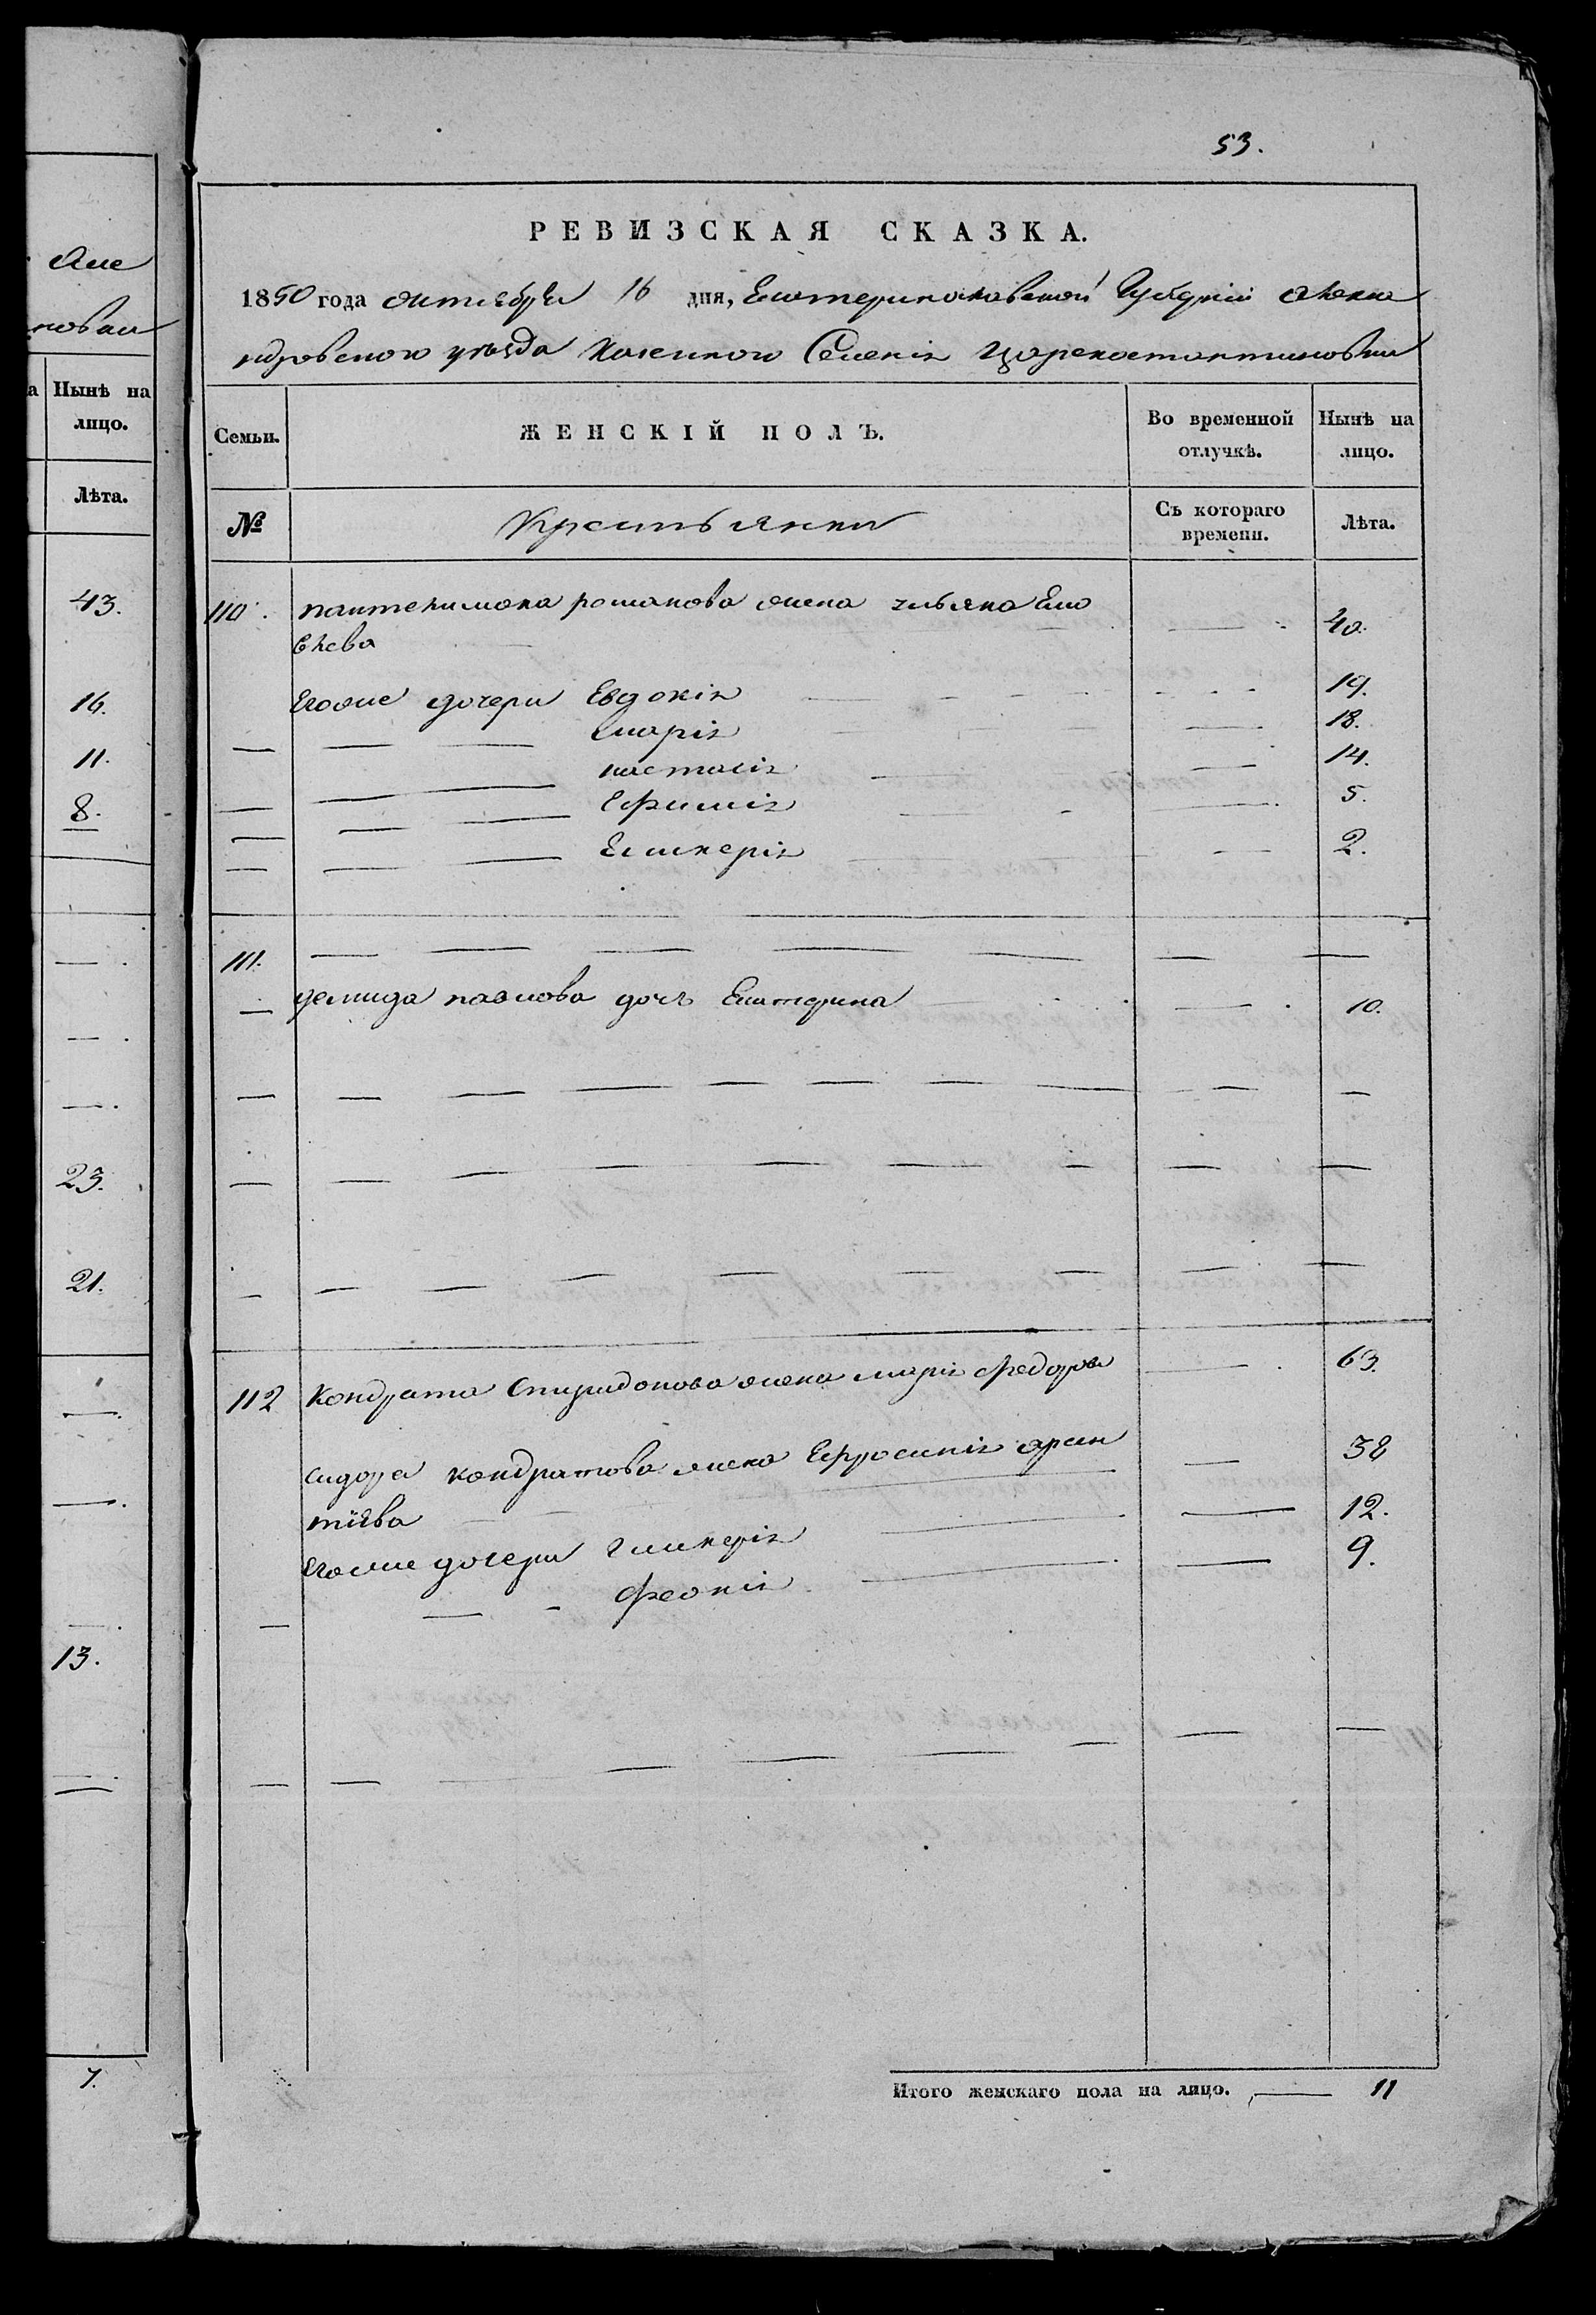 аме
новки
а Нынѣ на
лицо.
Лѣта.
43.
16.
11.
8.
23.
21.
13.
7.
53.
РЕВИЗСКАЯ СКАЗКА.
1850 года октября 16 дня, Екатеринославской Губерніи Алекса
ндровского уезда казенного Селенія Цареконстантиновки
Семьи.
ЖЕНСКІЙ ПОЛЪ.
Во временной отлучкѣ.
Нынѣ на лицо.
№
Крестьянки
Съ котораго времени.
Лѣта.
110. пантелимона романова жена ульяна 40.
егоже дочери Евдокія 19.
марія 18.
настасія 14.
Ефимія 5.
Гликерія 2.
111.
демида павлова дочь Екатерина 10.
112 Кондрата Спиридонова жена марія Федорова 63
сидора кондратова жена Ефросинія 38
тіева
егоже дочери гликерія 12.
феокія 9.
Итого женскаго пола на лицо. 11